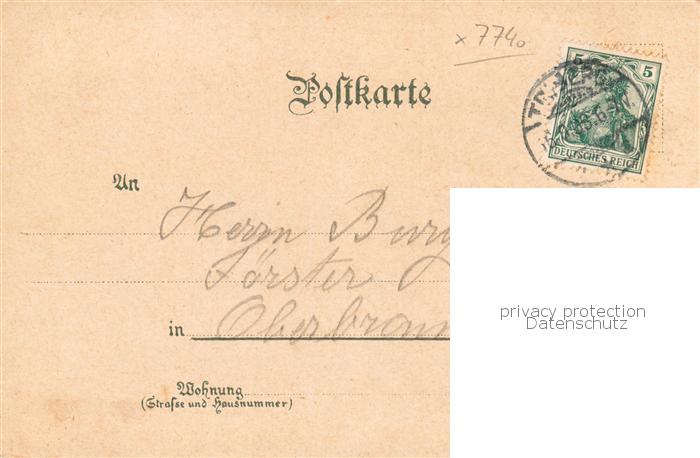 x 7740
5 5
DEUTSCHES REICH
Postkarte
An
Herrn Burg
Förster
in Oberbronn
privacy protection
Datenschutz
Wohnung
(Strasse und Hausnummer)